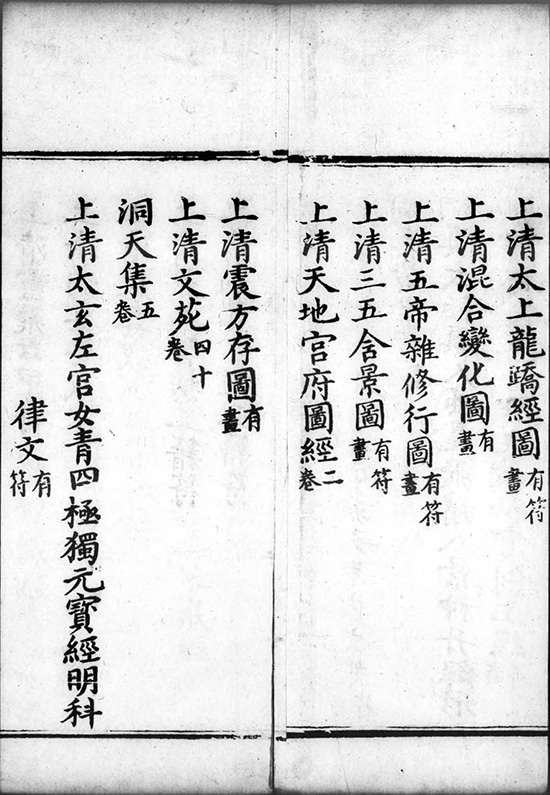 上清太上龍蹻經圖有符畫
上清混合變化圖有畫
上清五帝雜修行圖有符畫
上清三五含景圖有符畫
上清天地宫府圖經二卷
上清震方存圖有畫
上清文苑四十卷
洞天集五卷
上清太玄左官女青四極獨元寳經明科
律文有符